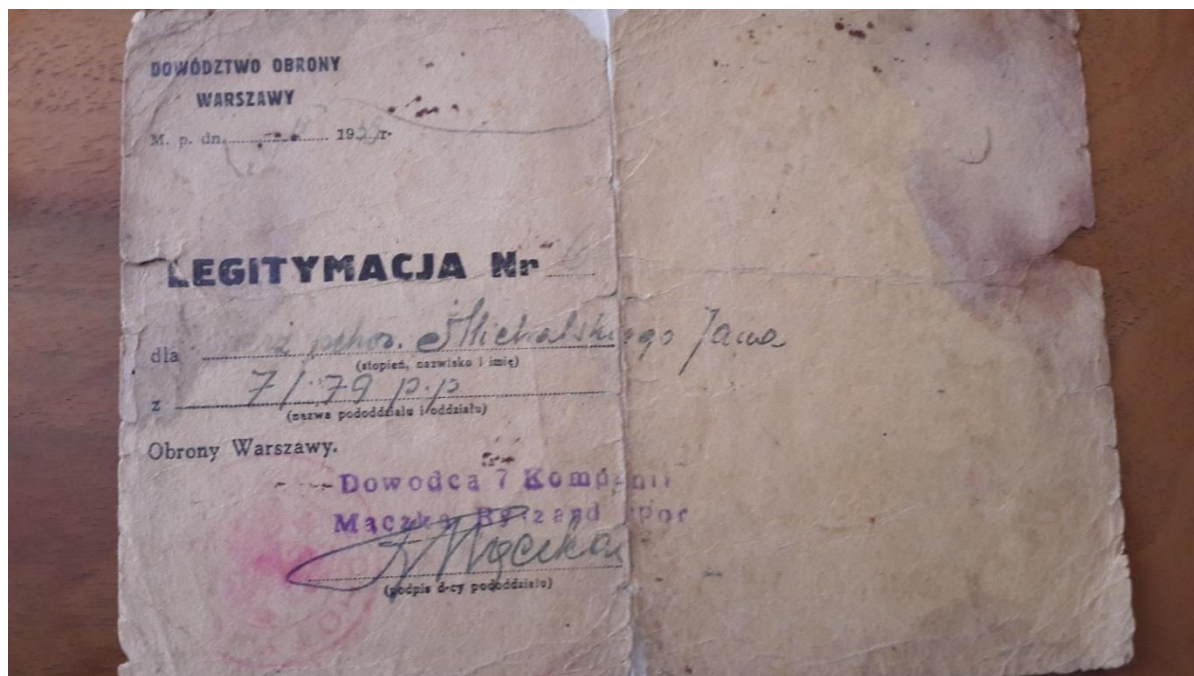 DOWÓDZTWO OBRONY
WARSZAWY
M. p. dn. 1939 r.
LEGITYMACJA Nr
dla pchor. Michalskiego Jana
(stopień, nazwisko i imię)
z 7/79 p.p
(nazwa pododdziału i oddziału)
Obrony Warszawy.
Dowodca 7 Kompanii
Mączka Ryszard ppor
Mączka
(podpis d-cy pododdziału)